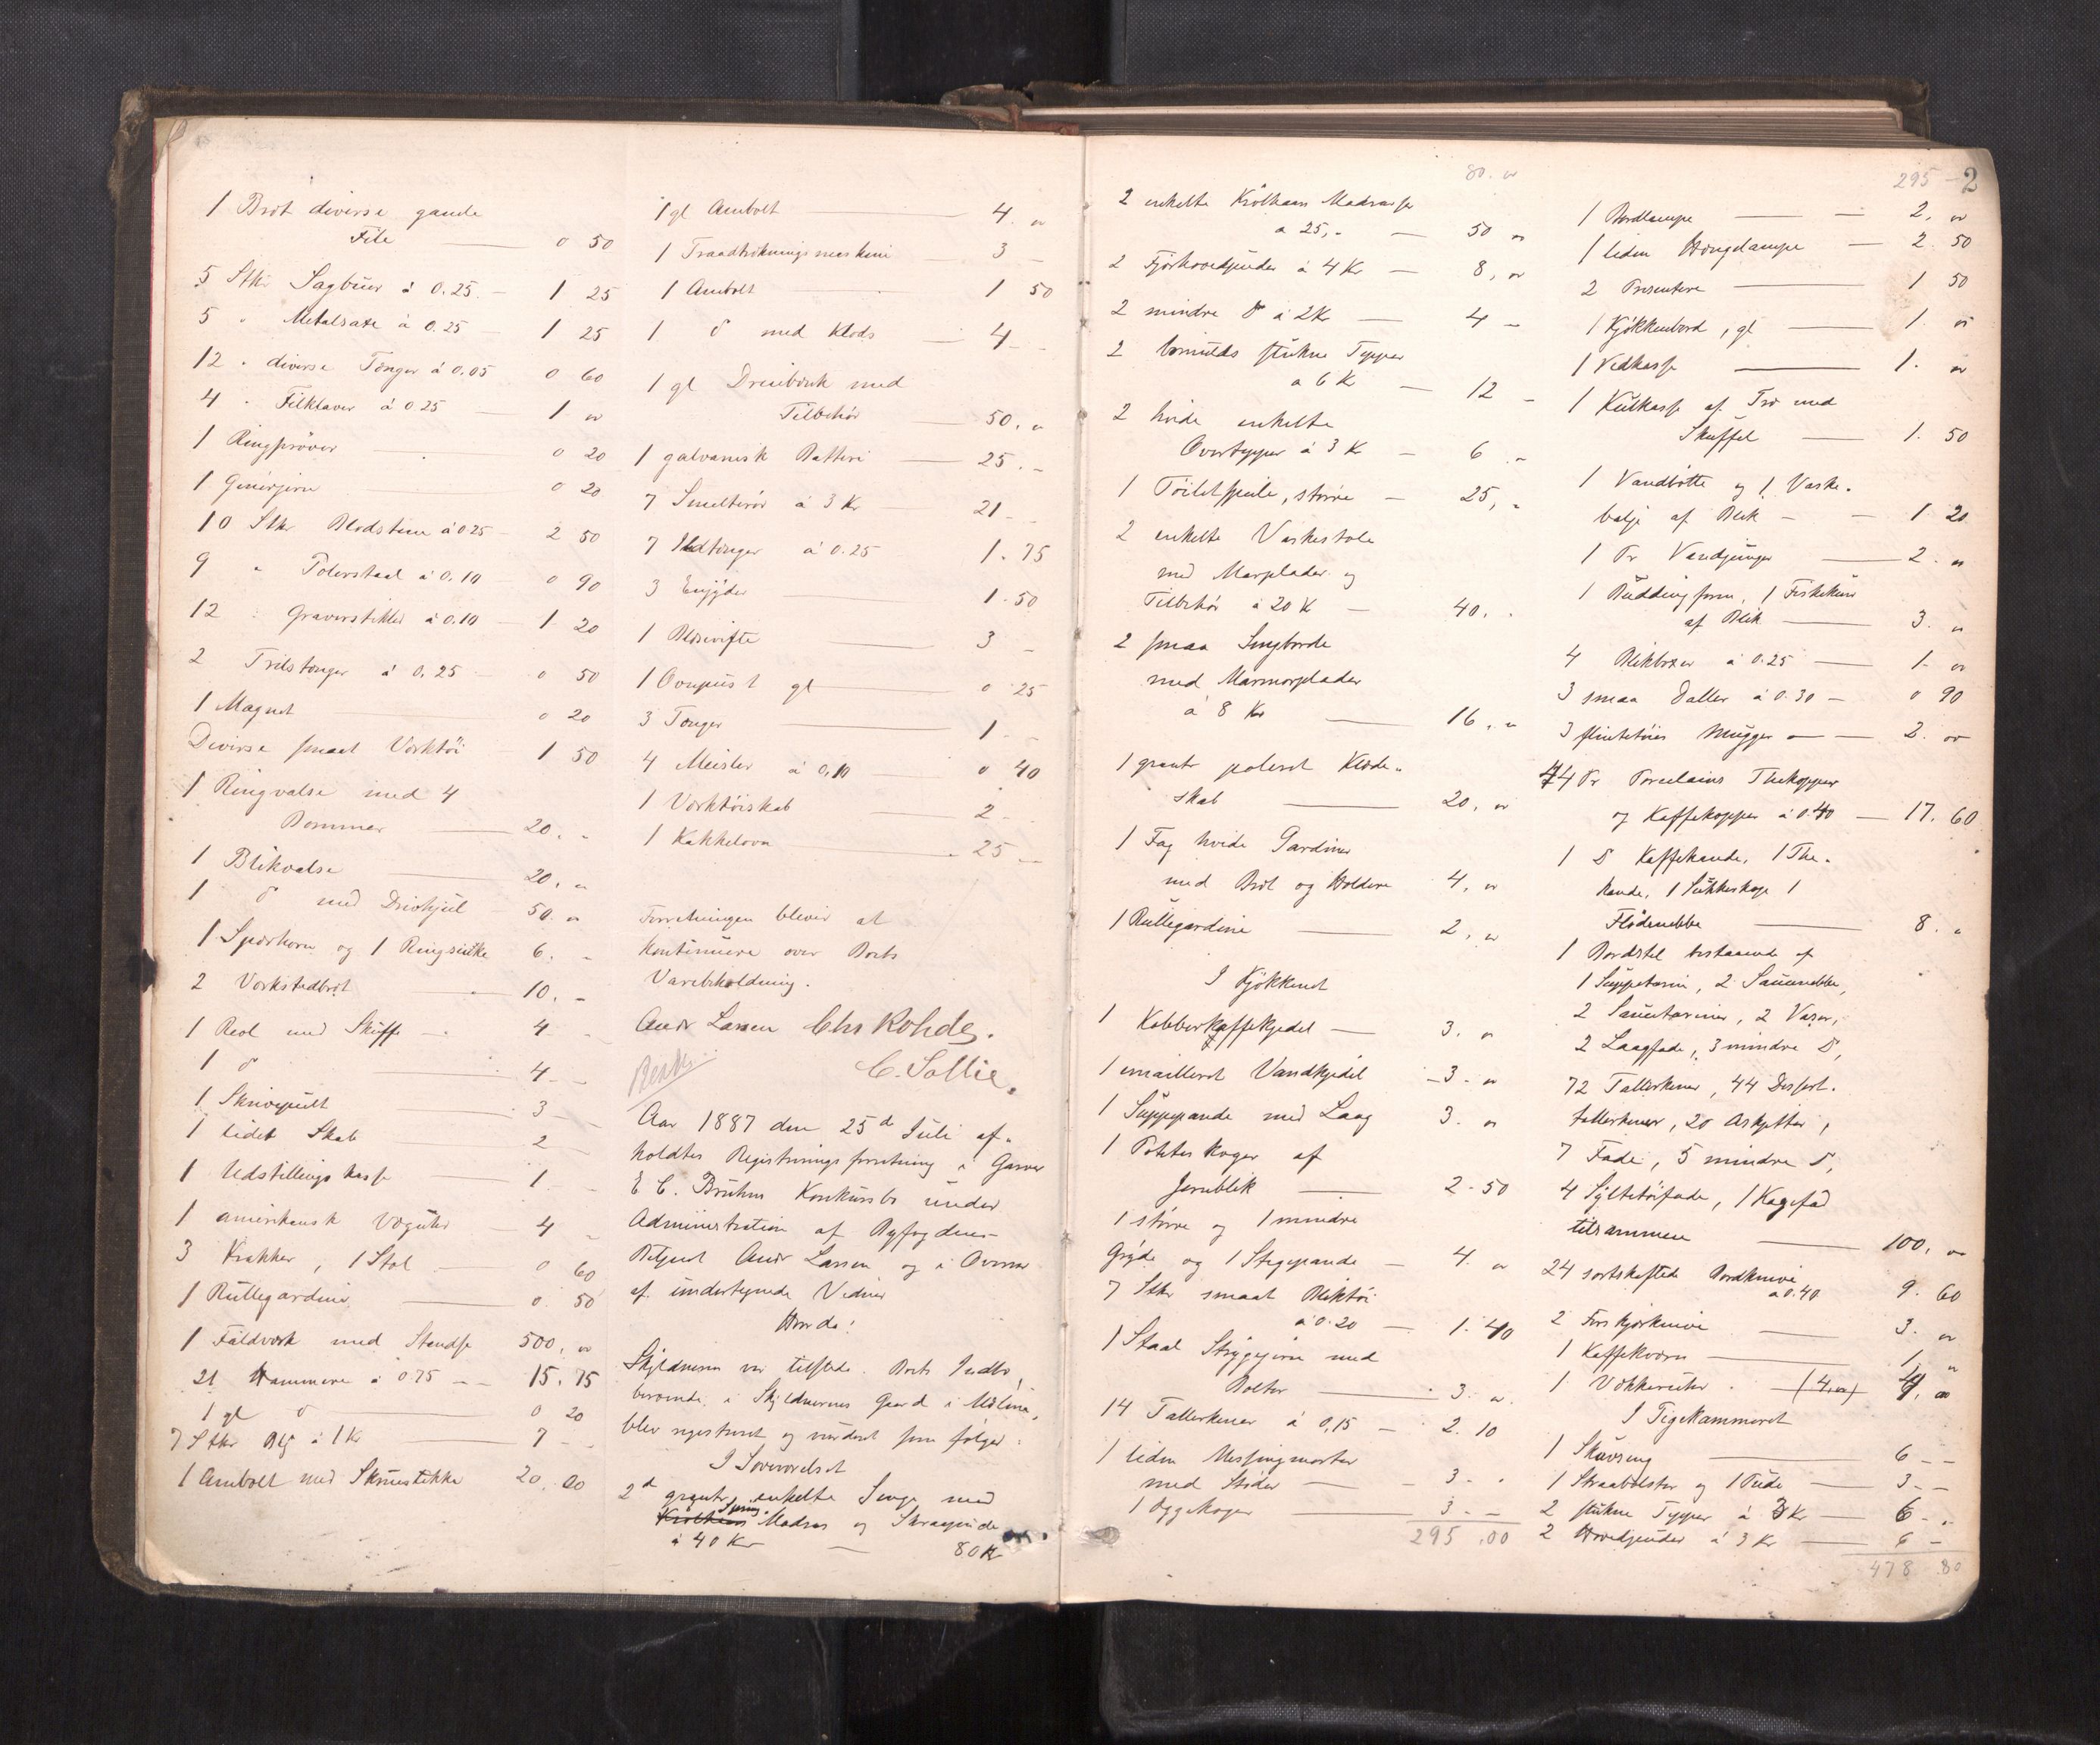 1 Bret diverse gamle
File — 0 50
5 Stkr Sagbuer à 0.25 — 1 25
5 " Metalsaxe à 0.25 — 1 25
12 " diverse Tænger à 0.05 0 60
4 " Filklaver à 0.25 — 1 "
1 Ringprøver — 0 20
1 — 0 20
10 Stkr Blodstene à 0.25 — 2 50
9 " Polerstaal à 0.10 0 90
12 " Gravérstikler à 0.10 — 1 20
2 Trækstænger à 0.25 — 0 50
1 Magnet — 0 20
Diverse smaat Værktøi — 1 50
1 Ringvalse med 4
Bommer — 20. "
1 Blikvalse — 20. "
1 do med Drivhjul — 50. "
1 Spærhorn og 1 Ringsænke 6. "
2 Værkstedbræt — 10. "
1 Reol med Skuffe — 4 "
1 do — 4 "
1 Skrivepult — 3 —
1 lidet Skab — 2 —
1 Udstillingskasse — 1 —
1 amerikansk Vægtuhr — 4 "
3 Krakker, 1 Stol — 0 60
1 Rullegardin — 0. 50
1 Faldværk med Standse 500. "
21 Hammere à 0.75 — 15. 75
1 gl do — 0 20
7 Stkr Bly à 1 Kr — 7 —
1 Ambolt med Skruestikke 20. 00
1 gl Ambolt — 4. "
1 Traadtrækningsmaskine 3 —
1 Ambolt — 1 50
1 do med Klods — 4 —
1 gl Dreiebænk med
Tilbehør — 50. "
1 galvanisk Batteri — 25. "
7 Smelterør à 3 Kr — 21 —
7 Ildtænger à 0.25 1. 75
3 — 1. 50
1 Blæsevifte — 3 —
1 Ovnpust gl — 0 25
3 Tænger — 1 —
4 Meisler à 0,10 — 0 40
1 Værktøiskab — 2 —
1 Kakkelovn — 25 —
Forretningen bliver at
kontinuere over Boets
Varebeholdning.
Andr Larsen Chr Rohde.
C. Sollie.
Aar 1887 den 25de Juli af-
holdtes Registreringsforretning i Garver
E C. Bruhns Konkursbo under
Administration af Byfogdens
Betjent Andr Larsen og i Overvær
af undertegnede Vidner
Hvorda:
Skyldneren var tilstede. Boets Indbo,
beroende i Skyldnerens Gaard i
blev registreret og vurderet som følger:
I Soveværelset
2de enkelte Senge med
Krølhaars Spring Madras og Skraapude
à 40 Kr — 80 Kr
80. "
2 enkelte Krølhaars Madrasse
à 25,- — 50 "
2 Fjærhovedpuder à 4 Kr — 8, "
2 mindre do à 2 Kr — 4 —
2 bomulds stukne Tepper
à 6 Kr — 12 —
2 hvide enkelte
Overtepper à 3 K — 6 "
1 Toiletspeile, større — 25, "
2 enkelte Vaskestole
med Marplader og
Tilbehør à 20 K — 40. "
2 smaa Sengborde
med Marmorplader
à 8 Kr — 16. "
1 poleret Klæde-
skab — 20. "
1 Fag hvide Gardiner
med Bræt og Holdere 4. "
1 Rullegardine — 2. "
I Kjøkkenet
1 Kobberkaffekjedel — 3. "
1 emailleret Vandkjedel — 3. "
1 Suppepande med Laag 3. "
1 Poteteskoger af
Jernblik — 2. 50
1 større og 1 mindre
Gryde og 1 Stegepande — 4. "
7 Stkr smaat Bliktøi
à 0.20 — 1. 40
1 Staal Strygejern med
Bolter — 3. "
14 Tallerkener à 0,15 — 2. 10
1 liden Messingmorter
med Støder — 3. "
1 Eggekoger — 3 —
295.00
295 — 2
1 Bordlampe — 2. "
1 liden Hængelampe — 2. 50
2 Presentere — 1 50
1 Kjøkkenbord, gl — 1. "
1 Vedkasse — 1. "
1 Kulkasse af Træ med
Skuffel — 1. 50
1 Vandbøtte og 1 Vaske-
balje af Blik — 1 20
1 Pr Vandspænger — 2. "
1 Buddingform, 1 Fiskekum
af Blik — 3. "
4 Blikboxer à 0.25 — 1. "
3 smaa Baller à 0.30 — 0 90
3 flintetøies Mugger — 2. "
44 Pr Porcelains Thekopper
og Kaffekopper à 0.40 — 17. 60
1 D Kaffekande, 1 The-
kande, 1 Sukkerkop 1
Flødenebbe — 8. "
1 Bordstel bestaaende af
1 Suppeterrin, 2 Sausenebber,
2 Sauseterriner, 2 Vaser,
2 Laagfade, 3 mindre D,
72 Tallerkener, 44 Dessert-
tallerkener, 20 Asjetter,
7 Fade, 5 mindre D,
4 Syltetøifade, 1 Kagefad
tilsammen — 100. "
24 sortskaftede Bordknive
à 0.40 9. 60
2 Forskjærknive — 3. "
1 Kaffekværn — 1. "
1 Vækkeruhr — (4.00) 4. 00
I Pigekammeret
1 Skuvseng — 6 —
1 Straabolster og 1 Pude — 3 —
2 stukne Tepper à 3 Kr — 6 —
2 Hovedpuder à 3 Kr — 6 —
478 80